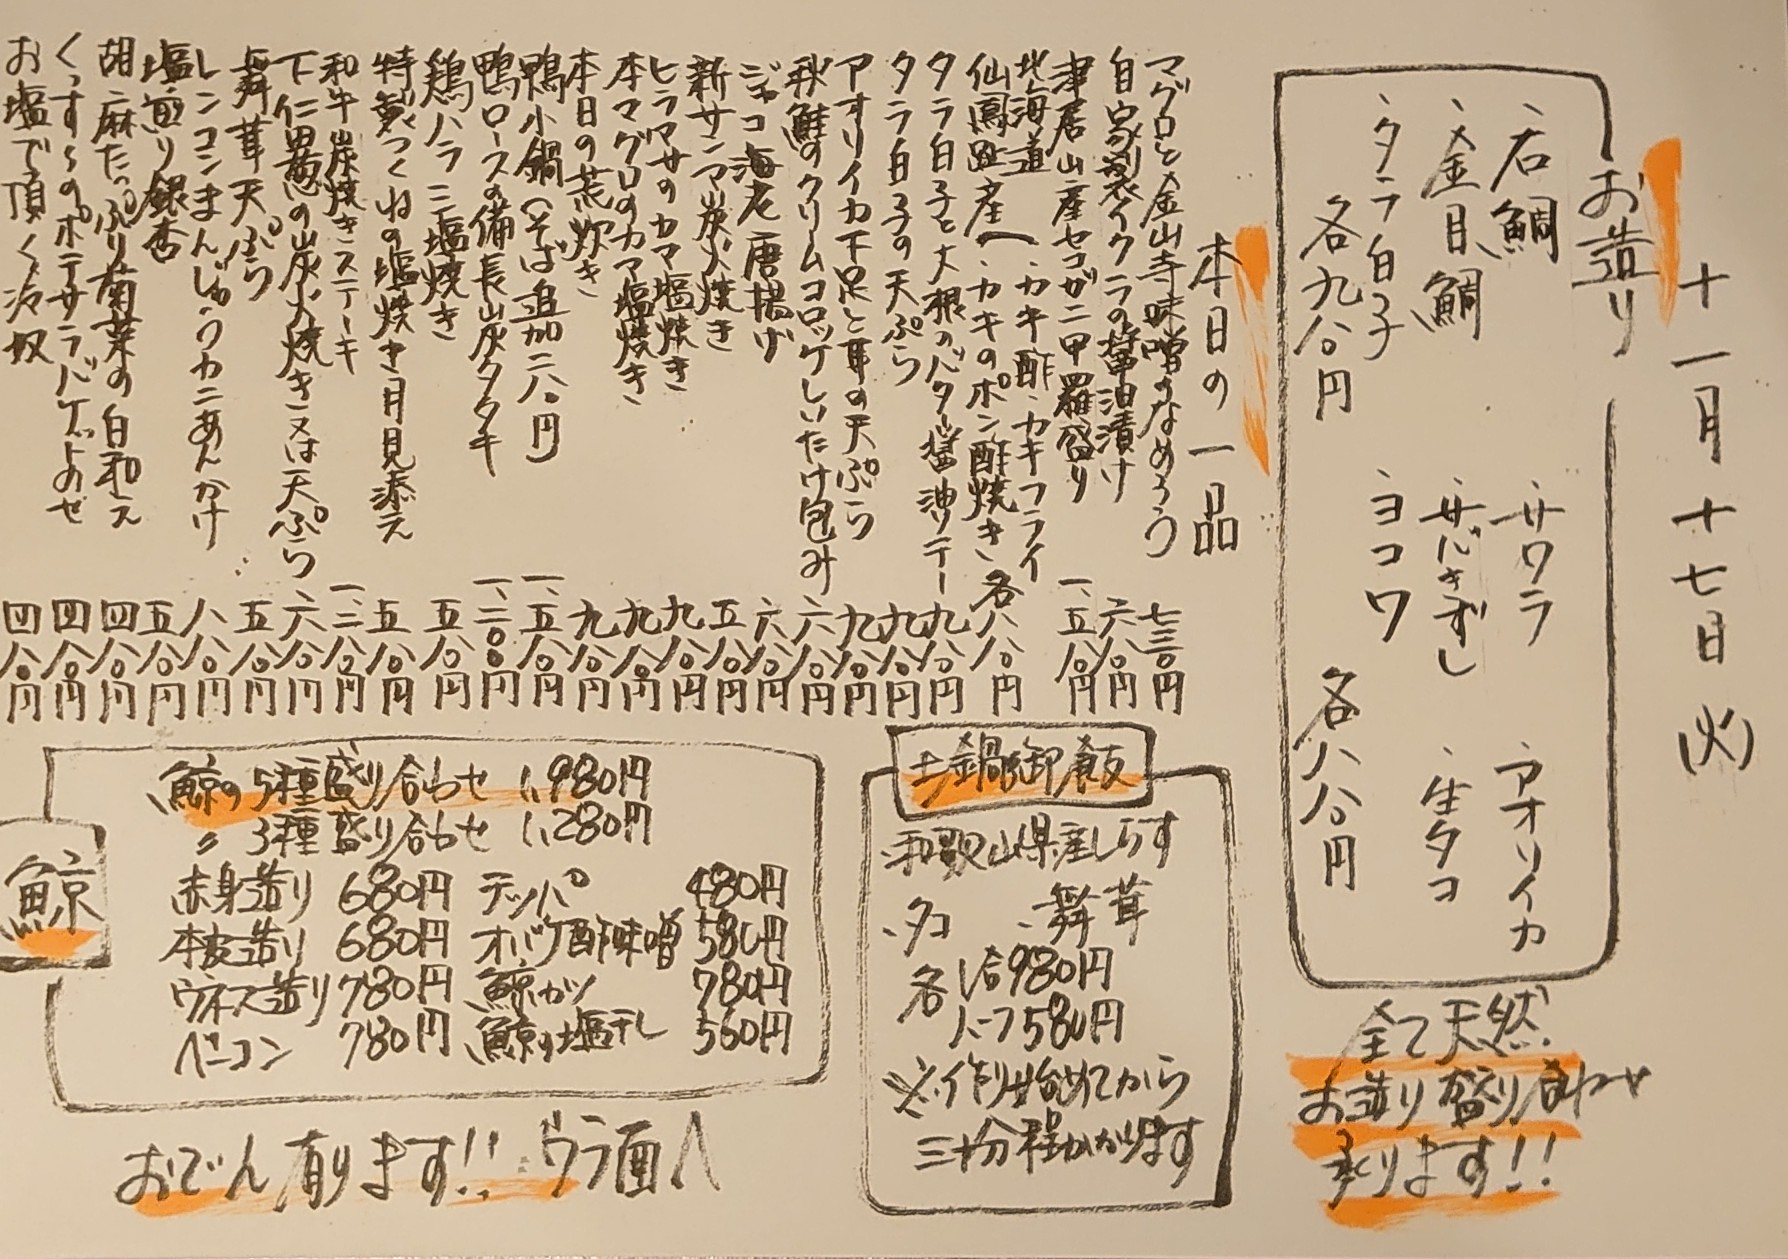 十一月十七日(火)
お造り
、石鯛 、サワラ 、アオリイカ
、金目鯛 、サバきずし 、生タコ
、タラ白子 、ヨコワ
各九八〇円 各八八〇円
全て天然
お造り盛り合わせ
承ります!!
本日の一品
マグロと金山寺味噌のなめろう 七三〇円
自家製イクラの醤油漬け 六八〇円
津居山産セコガニ甲羅盛り 一、五八〇円
北海道 ( 、カキ酢 、カキフライ
仙鳳趾産 ( 、カキのポン酢焼き 各八八〇円
タラ白子と大根のバター醤油ソテー 九八〇円
タラ白子の天ぷら 九八〇円
アオリイカ下足と茸の天ぷら 九八〇円
秋鮭のクリームコロッケしいたけ包み 六八〇円
ジャコ海老唐揚げ 六八〇円
新サンマ炭火焼き 五八〇円
ヒラマサのカマ塩焼き 九八〇円
本マグロのカマ塩焼き 九八〇円
本日の荒炊き 九八〇円
鴨小鍋(そば追加二八〇円 一、五八〇円
鴨ロースの備長炭タタキ 一、二〇〇円
鶏ハラミ塩焼き 五八〇円
特製つくねの塩焼き月見添え 五八〇円
和牛炭焼きステーキ 一、二八〇円
下仁田葱の炭火焼き又は天ぷら 六八〇円
舞茸天ぷら 五八〇円
レンコンまんじゅうカニあんかけ 八八〇円
塩煎り銀杏 五八〇円
胡麻たっぷり菊菜の白和え 四八〇円
くっすらのポテサラバゲットのせ 四八〇円
お塩で頂く冷奴 四八〇円
土鍋御飯
、和歌山県産しらす
、タコ 、舞茸
各 1合980円
ハーフ580円
※作り始めてから
三十分程かかります
鯨
、鯨の5種盛り合わせ 1,980円
〃 3種盛り合わせ 1,280円
赤身造り 680円 テッパ 480円
本皮造り 680円 オバケ酢味噌 580円
ウネス造り 780円 鯨カツ 780円
ベーコン 780円 鯨の塩干し 560円
おでん有ります!! ウラ面へ